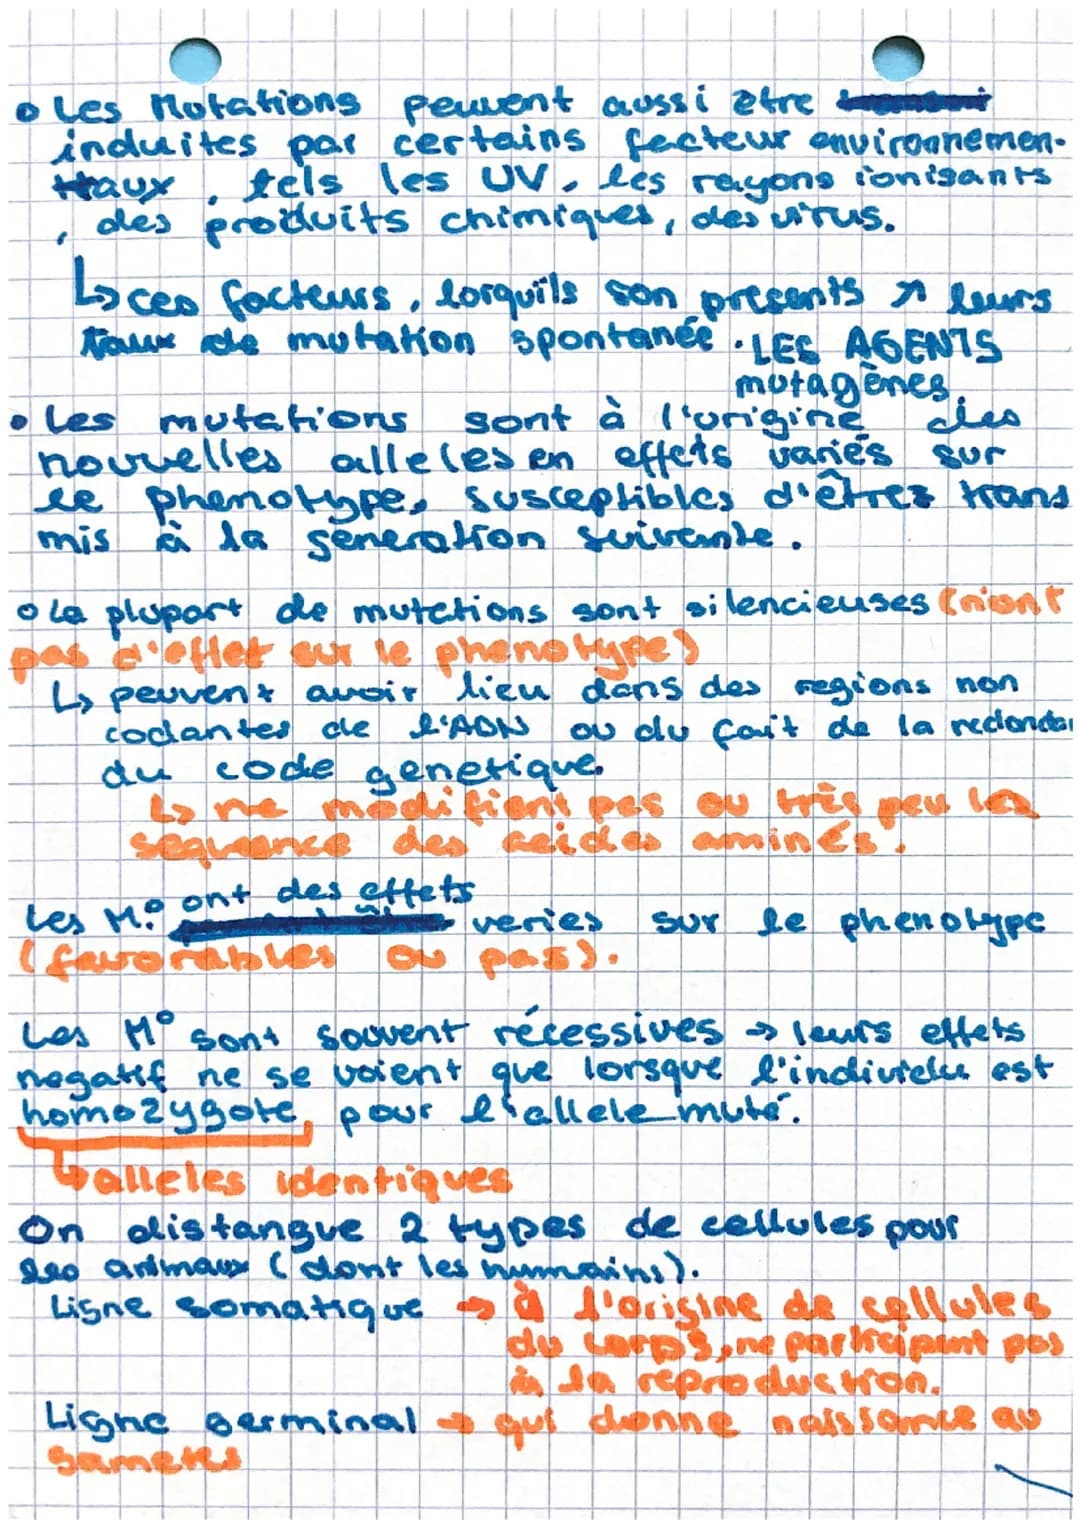 Les Mutations peuvent aussi être
induites par certains facteur environnemen-
ttaux, tels les UV, les rayons ionisants
, des produits chimiques, des virus.
↳ ces facteurs, lorquils son presents ↗ leurs
taux de mutation spontanée. LES AGENTS
mutagènes.
• Les mutations sont à l'origine des
nouvelles alleles en effets variés sur
le phenotype, susceptibles d'êtres trans
mis à la generation suivante.
o La plupart de mutations sont silencieuses (n'ont
pas d'effet sur le phenotype)
↳ peuvent avoir lieu dans des regions non
codantes de l'ADN ou du fait de la redondan
du code genetique.
↳ ne modifient pas ou très peu les
sequence des acides aminés.
ont des effets
Les M° varies sur le phenotype
(favorables ou pas).
Les M° sont souvent récessives → leurs effets
negatif ne se voient que lorsque l'individu est
homozygote pour l'allele muté.
↳ alleles identiques
On distangue 2 types de cellules pour
les animaux (dont les humains).
Ligne somatique → à l'origine de cellules
du corps, ne participant pas
à la reproduction.
Ligne germinal → qui donne naissance au
gametes